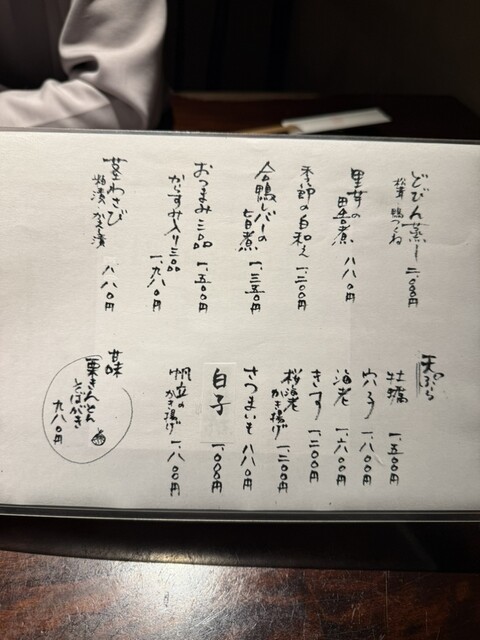 どびん蒸し 二、〇〇〇円
松茸・鴨つくね
里芋の田舎煮 八八〇円
季節の白和え 一、二〇〇円
合鴨レバーの旨煮 一、三五〇円
おつまみ三品 一、五〇〇円
からすみ入り三品 一、九八〇円
茎わさび
粕漬・かえし漬 八八〇円
天ぷら
牡蠣 一、五〇〇円
穴子 一、八〇〇円
海老 一、六〇〇円
きす 一、二〇〇円
桜海老かき揚げ 一、二〇〇円
さつまいも 八八〇円
白子 一、〇〇〇円
帆立のかき揚げ 一、八〇〇円
甘味
栗きんとん
そばがき
九八〇円